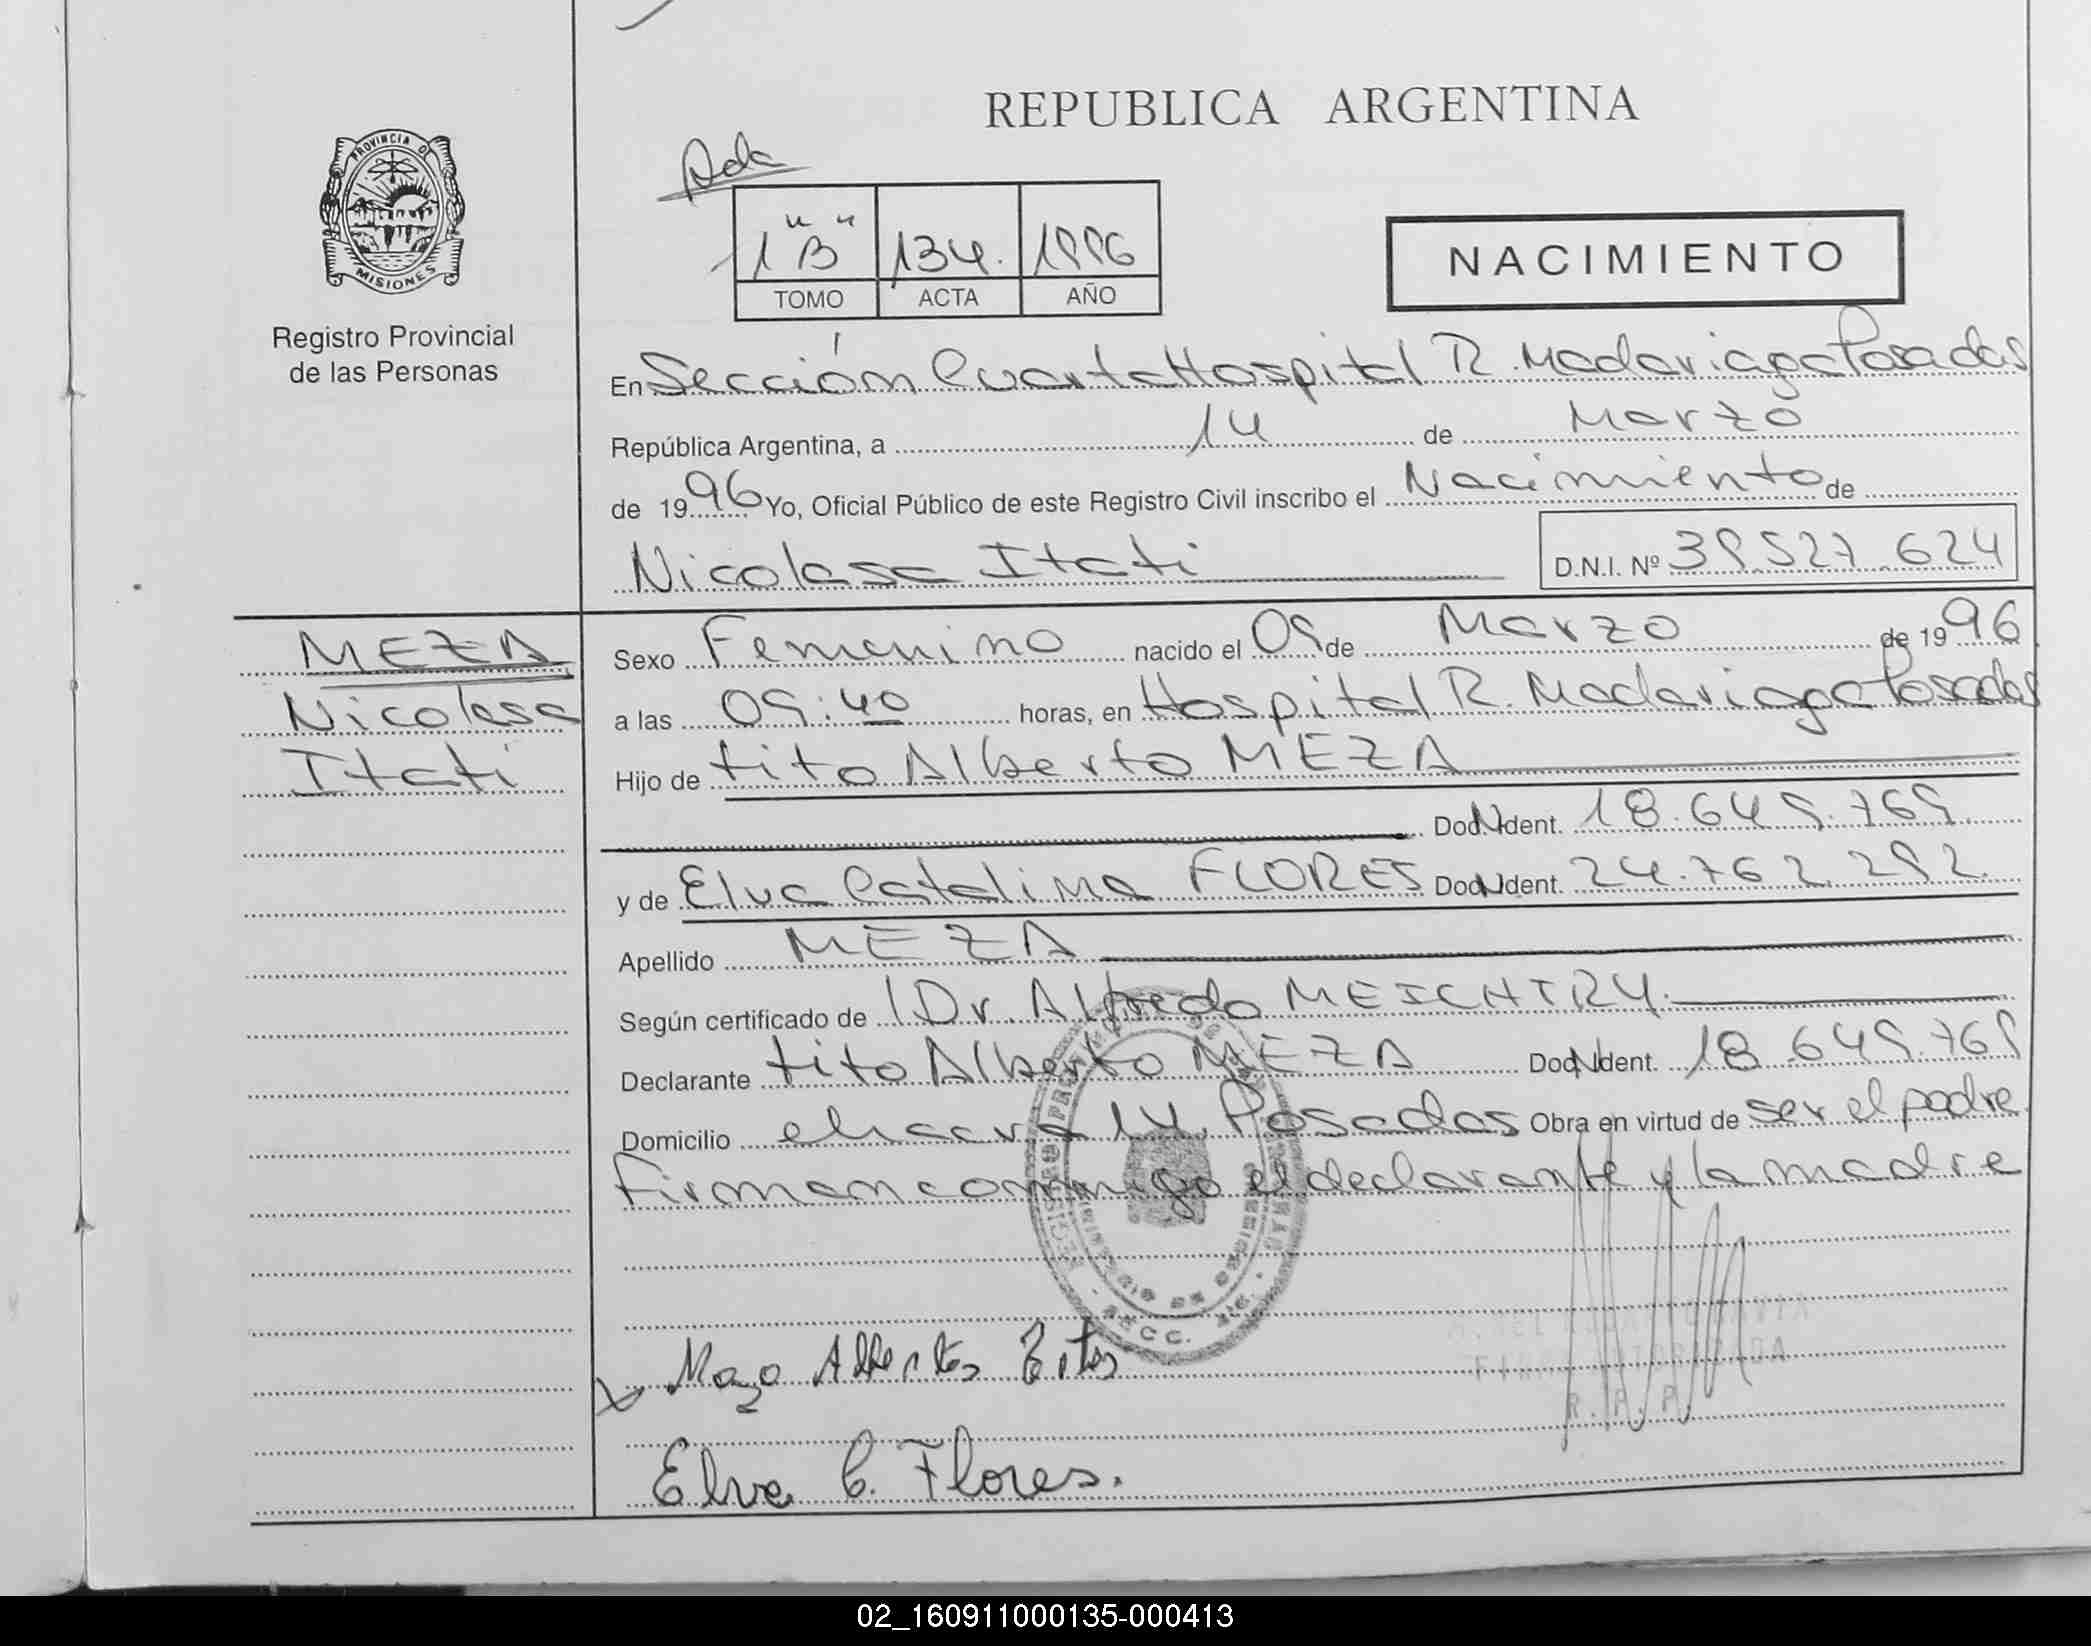 REPUBLICA ARGENTINA
PROVINCIA DE
MISIONES
Registro Provincial
de las Personas
1 "B" 134. 1996
TOMO ACTA AÑO
NACIMIENTO
En Sección Cuarta Hospital R. Madariaga Posadas
República Argentina, a 14 de Marzo
de 1996 Yo, Oficial Público de este Registro Civil inscribo el Nacimiento de
Nicolasa Itati D.N.I. Nº 39.527.624
MEZA
Nicolasa
Itati
Sexo Femenino nacido el 09 de Marzo de 1996
a las 09:40 horas, en Hospital R. Madariaga Posadas
Hijo de tito Alberto MEZA
Doc. Ident. 18.649.769
y de Elva Catalina FLORES Doc. Ident. 24.762.292
Apellido MEZA
Según certificado de Dr. Alfredo MEICHTRY.
Declarante tito Alberto MEZA Doc. Ident. 18.649.769
Domicilio chacra 14. Posadas Obra en virtud de ser el padre
Firman conmigo el declarante y la madre
Alberto
R. P. P.
Elva C. Flores.
02_160911000135-000413